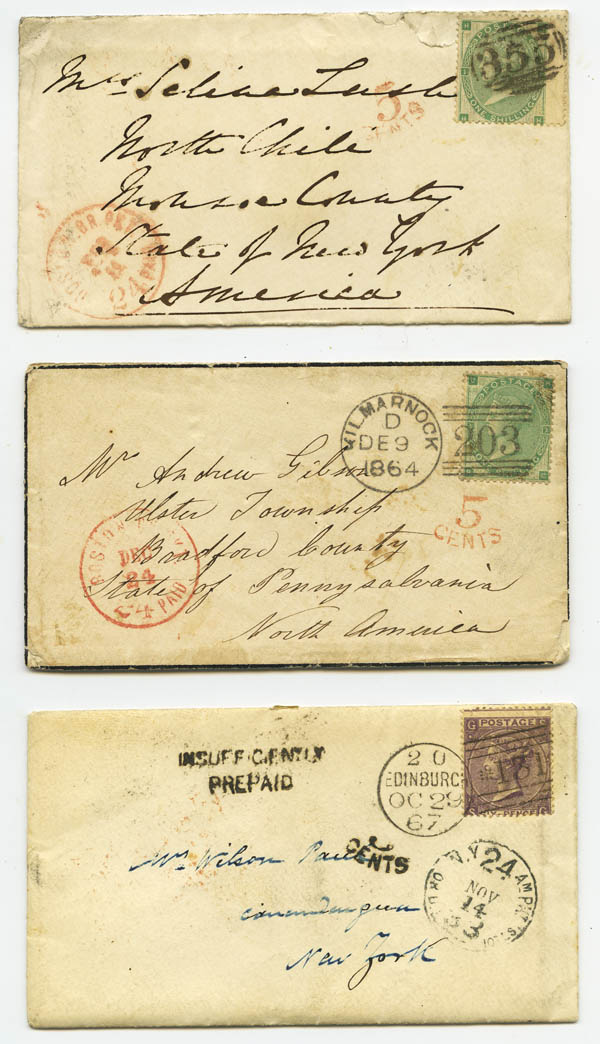 POSTAGE
355
ONE SHILLING
H H
Mrs Selina Lush
5
CENTS
North Chili
Monroe County
State of New York
America
BOSTON BR. PKT
24
PAID
POSTAGE
KILMARNOCK
D
DE 9
1864
203
5
CENTS
Mr Andrew Gibson
Ulster Township
Bradford County
State of Pennysalvania
North America
BOSTON
DEC
24
24
PAID
INSUFFICIENTLY
PREPAID
G POSTAGE G
131
SIX PENCE
20
EDINBURGH
OC 29
67
2
CENTS
Mrs Wilson
New York
N.Y. 24 AM PKT
NOV
14
33